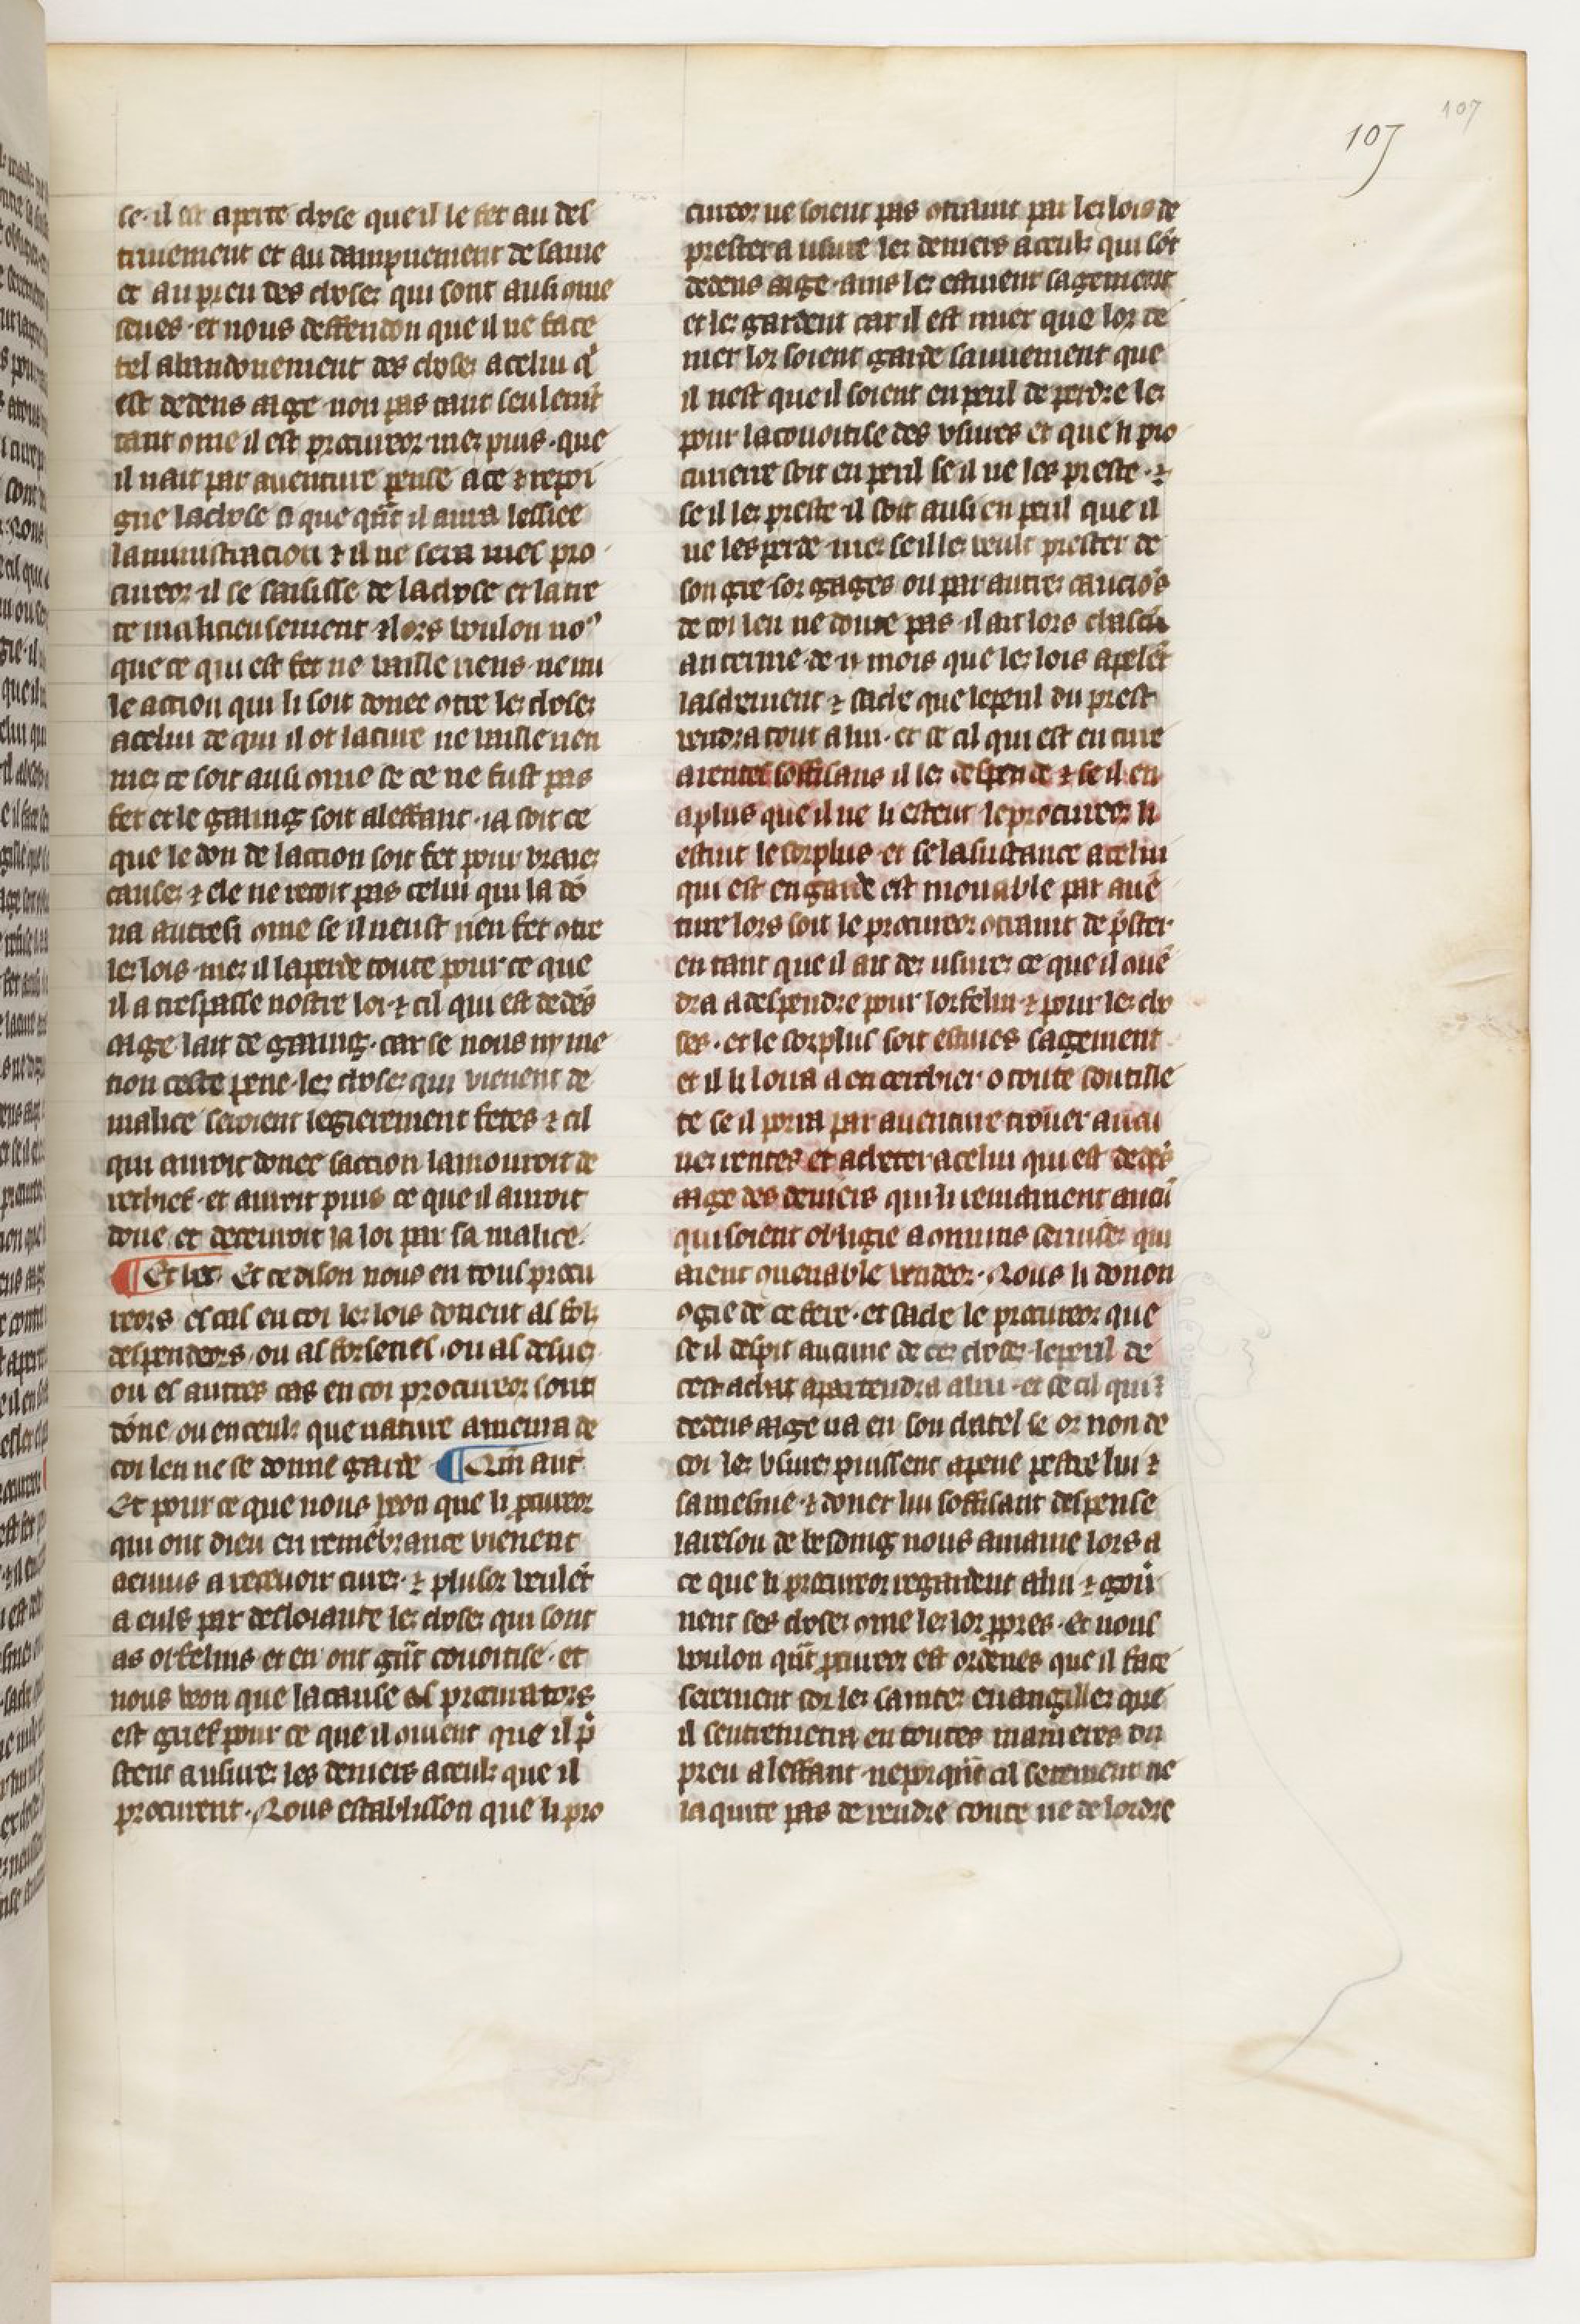 107
107
se· il est aperte chose que il le fet au des
truiement et au dampnement de lame
et au preu des choses qui sont ausi ome
seues· et nous deffendon que il ne face
tel abandonement des choses a celui q̾
est dedens aige· non pas tant seulemt̄
tant ome il est procureor· mes puis· que
il nait par auenture pense a ce ⁊ repoi
gne la chose si que qn̄t il aura lessiee
laministracion ⁊ il ne sera mes pro
cureor· il se saisisse de la chose et la tre
te malicieusement· ⁊ lors voulon noꝰ
que ce qui est fet ne vaille riens· ne nu
le action qui li soit donee otre les choses
a celui de qui il ot la cure ne vaille rien
mes ce soit ausi ome se ce ne fust pas
fet et le gaaing soit a leffant· ia soit ce
que le don de laction soit fet pour vraies
causes ⁊ ele ne recoit pas celui qui la dō
na autresi ome se il neust rien fet otre
les lois· mes il la perde toute pour ce que
il a trespasse nostre loi· ⁊ cil qui est dedēs
aige lait de gaaing· car se nous ny me
tion ceste pene· les choses qui vienent de
malice seroient legierement fetes ⁊ cil
qui auroit donee laction lamouroit de
rechief· et auroit puis ce que il auroit
done et deceuroit la loi par sa malice·
¶ Et hec· Et ce dison nous en tous procu
reors el cas en coi les lois donent as fols
despendeors· ou as forsenes· ou as desues
ou es autres cas en coi procureor sont
done· ou en ceuls que nature amerra de
coi len ne se donne garde ¶ Qm̄ aut̄
Et pour ce que nous veon que li ꝓcureor
qui ont dieu en remēbrance vienent
a enuis a receuoir cures· ⁊ plusor veulēt
a euls par desloiaute les choses qui sont
as orfelins· et en ont gn̄t couoitise· et
nous veon que la cause as procurators
est grief pour ce que il ouient que il p̾
stent a usures les deniers a ceuls que il
procurent· Nous establisson que li pro
cureor ne soient pas otraint par les lois de
prester a usure les deniers a ceuls qui sōt
dedens aige· ains les estuient sagement
et les gardent car il est mier que lor de
nier lor soient garde sauuement que
il nest que il soient en peril de perdre les
pour la couoitise des vsures et que li pro
cureire soit en peril se il ne les preste· ⁊
se il les preste il soit ausi en peril que il
ne les perde· mes se il les veult prester de
son gre sor gages ou par autres caucioñs
de coi len ne doute pas· il ait lors chascū
an terme de ·ii· mois que les lois apelēt
laschement ⁊ sache que le peril du prest
vendra tout a lui· et se cil qui est en cure
a rentes soffisans il les despende ⁊ se il en
a plus que il ne li esteut le procureor li
estuit le sorplus· et se la sustance a celui
qui est en garde est mouable par auē
ture lors soit le procureor otraint de p̾ster
en tant que il ait des usures ce que il ouē
dra a despendre pour lorfelin ⁊ pour les cho
ses· et le sorplus soit estuies sagement
et il li loira a encerchier o toute soutille
te se il porra par auenture trouer aucu
nes rentes et acheter a celui qui est dedēs
aige des deniers qui li remainent aucū
qui soient obligie a omuns seruises qui
aient ouenable vendeor· Nous li donon
ogie de ce fere· et sache le procureor que
se il despit aucune de ces choses· le peril de
cest achat apartendra a lui· et se cil qui ⁊
dedens aige na en son chatel se or non de
coi les vsures puissent a pene pestre lui ⁊
sa mesnie· ⁊ doner lui soffisant despense
la reson de besoing nous amaine lors a
ce que li procureor regardent a lui ⁊ gou̾
nent ses choses ome les lor ꝓpres· Et nous
voulon qn̄t ꝓcureor est ordenes que il face
serement sor les saintes euangilles que
il sentremetra en toutes manieres du
preu a leffant· neporqn̄t cil serement ne
la quite pas de rendre conte ne de lordre